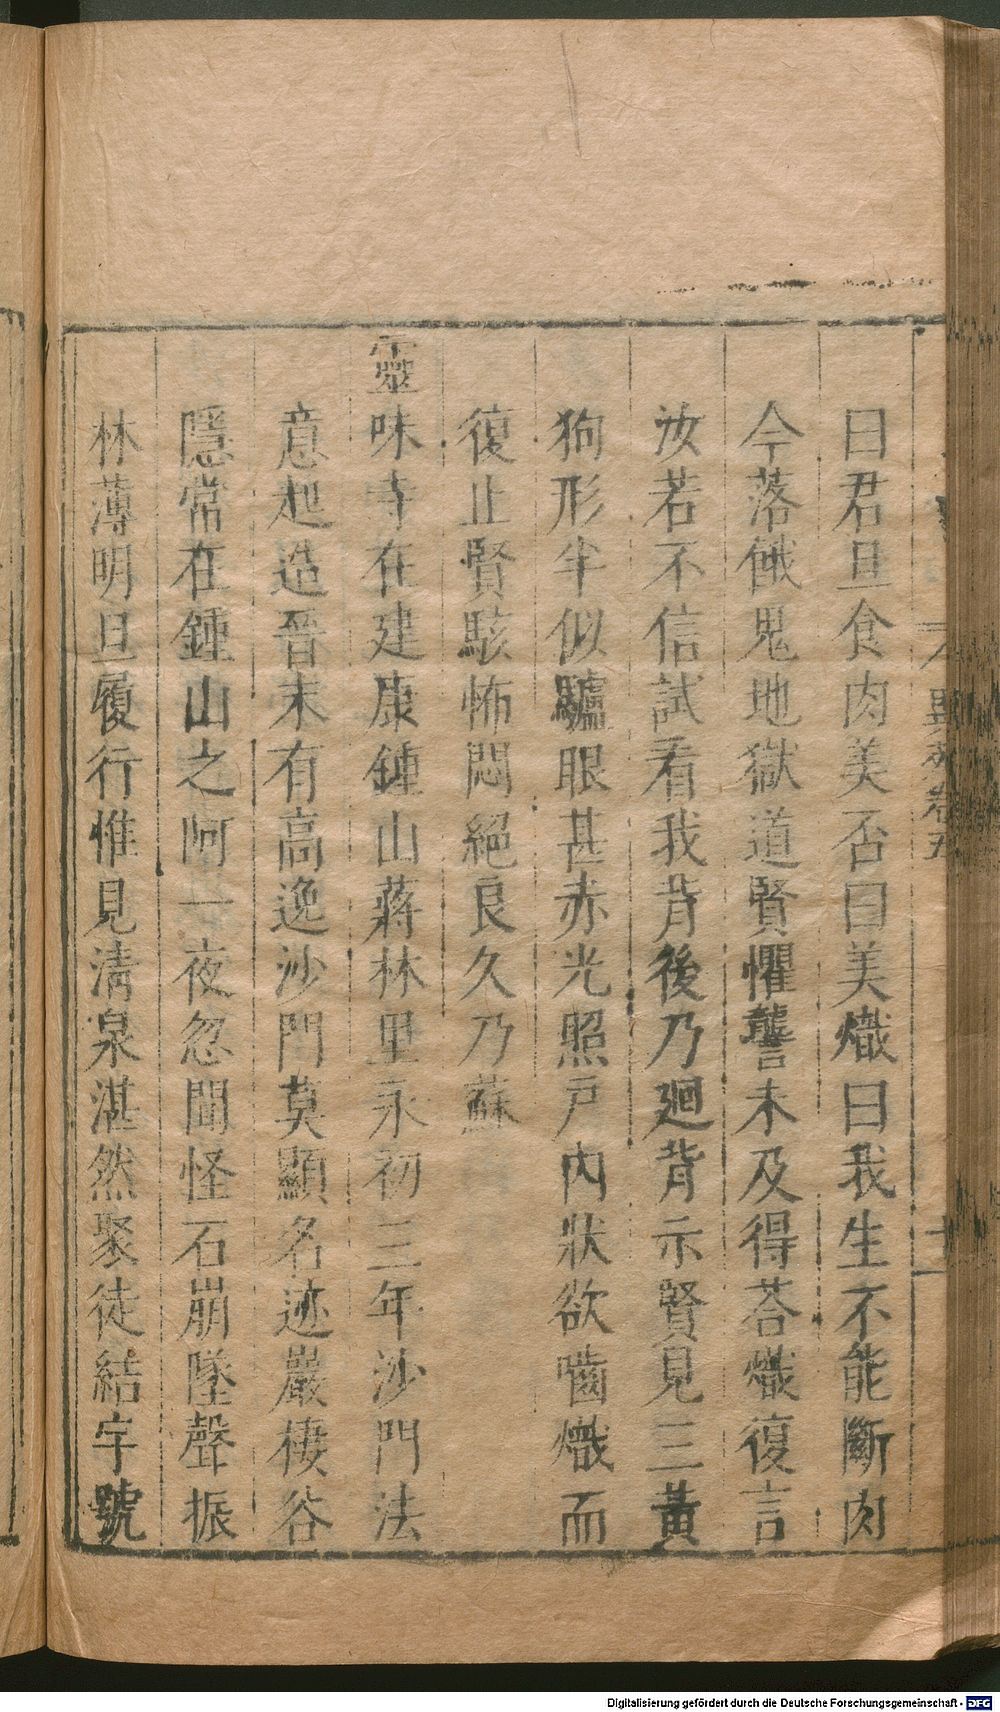 曰君旦食肉美否曰美熾曰我生不能斷肉
今落餓鬼地獄道賢懼讋未及得荅熾復言
汝若不信試看我背後乃廻背示賢見三黃
狗形半似驢眼甚赤光照戸內狀欲嚙熾而
復止賢駭怖悶絕良久乃蘇
靈味寺在建康鍾山蔣林里永初三年沙門法
意起造晉末有高逸沙門莫顯名迹巖棲谷
隱常在鍾山之阿一夜忽聞怪石崩墜聲振
林薄明旦履行惟見清泉湛然聚徒結宇號
異苑卷五
Digitalisierung gefördert durch die Deutsche Forschungsgemeinschaft - DFG